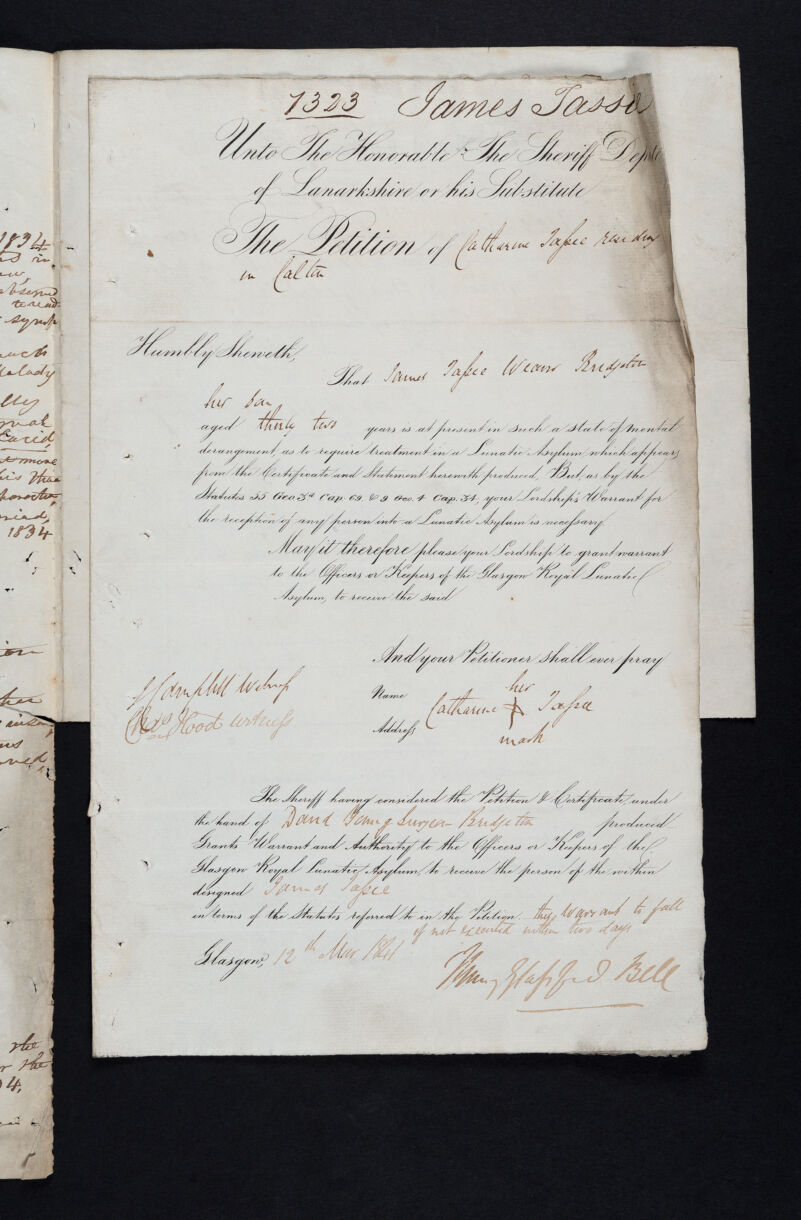 1834
1834
1323 James Tassie
Unto The Honorable The Sheriff Depute
of Lanarkshire or his Substitute
The Petition of Catharine Tassie residing
in Calton
Humbly Sheweth,
That James Tassie Weaver Bridgeton
her Son
aged thirty two years is at present in such a state of mental
derangement, as to require treatment in a Lunatic Asylum, which appears
from the Certificate and Statement herewith produced, But, as by the
Statutes 55 Geo. 3d Cap. 69. & 9 Geo. 4 Cap. 34, your Lordship's Warrant for
the reception of any person into a Lunatic Asylum is necessary
May it therefore please your Lordship to grant warrant
to the Officers or Keepers of the Glasgow Royal Lunatic
Asylum, to receive the said
And your Petitioner shall ever pray
J Campbell Witness
Hood witness
her
Name Catharine + Tassie
Address
mark
The Sheriff having considered the Petition & Certificate, under
the hand of David Young Surgeon Bridgeton produced
Grants Warrant and Authority to the Officers or Keepers of the
Glasgow Royal Lunatic Asylum, to receive the person of the within
designed James Tassie
in terms of the Statutes referred to in the Petition this Warrant to fall
if not executed within two days
Glasgow, 12th Mar 1841
Henry Glassford Bell